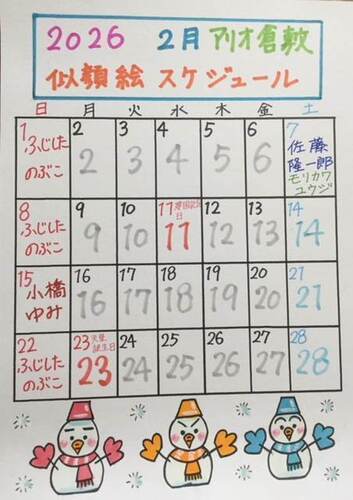 2026 2月 アリオ倉敷
似顔絵 スケジュール
日 月 火 水 木 金 土
1 ふじた のぶこ
2 2
3 3
4 4
5 5
6 6
7 佐藤 隆一郎 モリカワ ユウジ
8 ふじした のぶこ
9 9
10 10
11 建国記念日 11
12 12
13 13
14 14
15 小橋 ゆみ
16 16
17 17
18 18
19 19
20 20
21 21
22 ふじした のぶこ
23 天皇誕生日 23
24 24
25 25
26 26
27 27
28 28